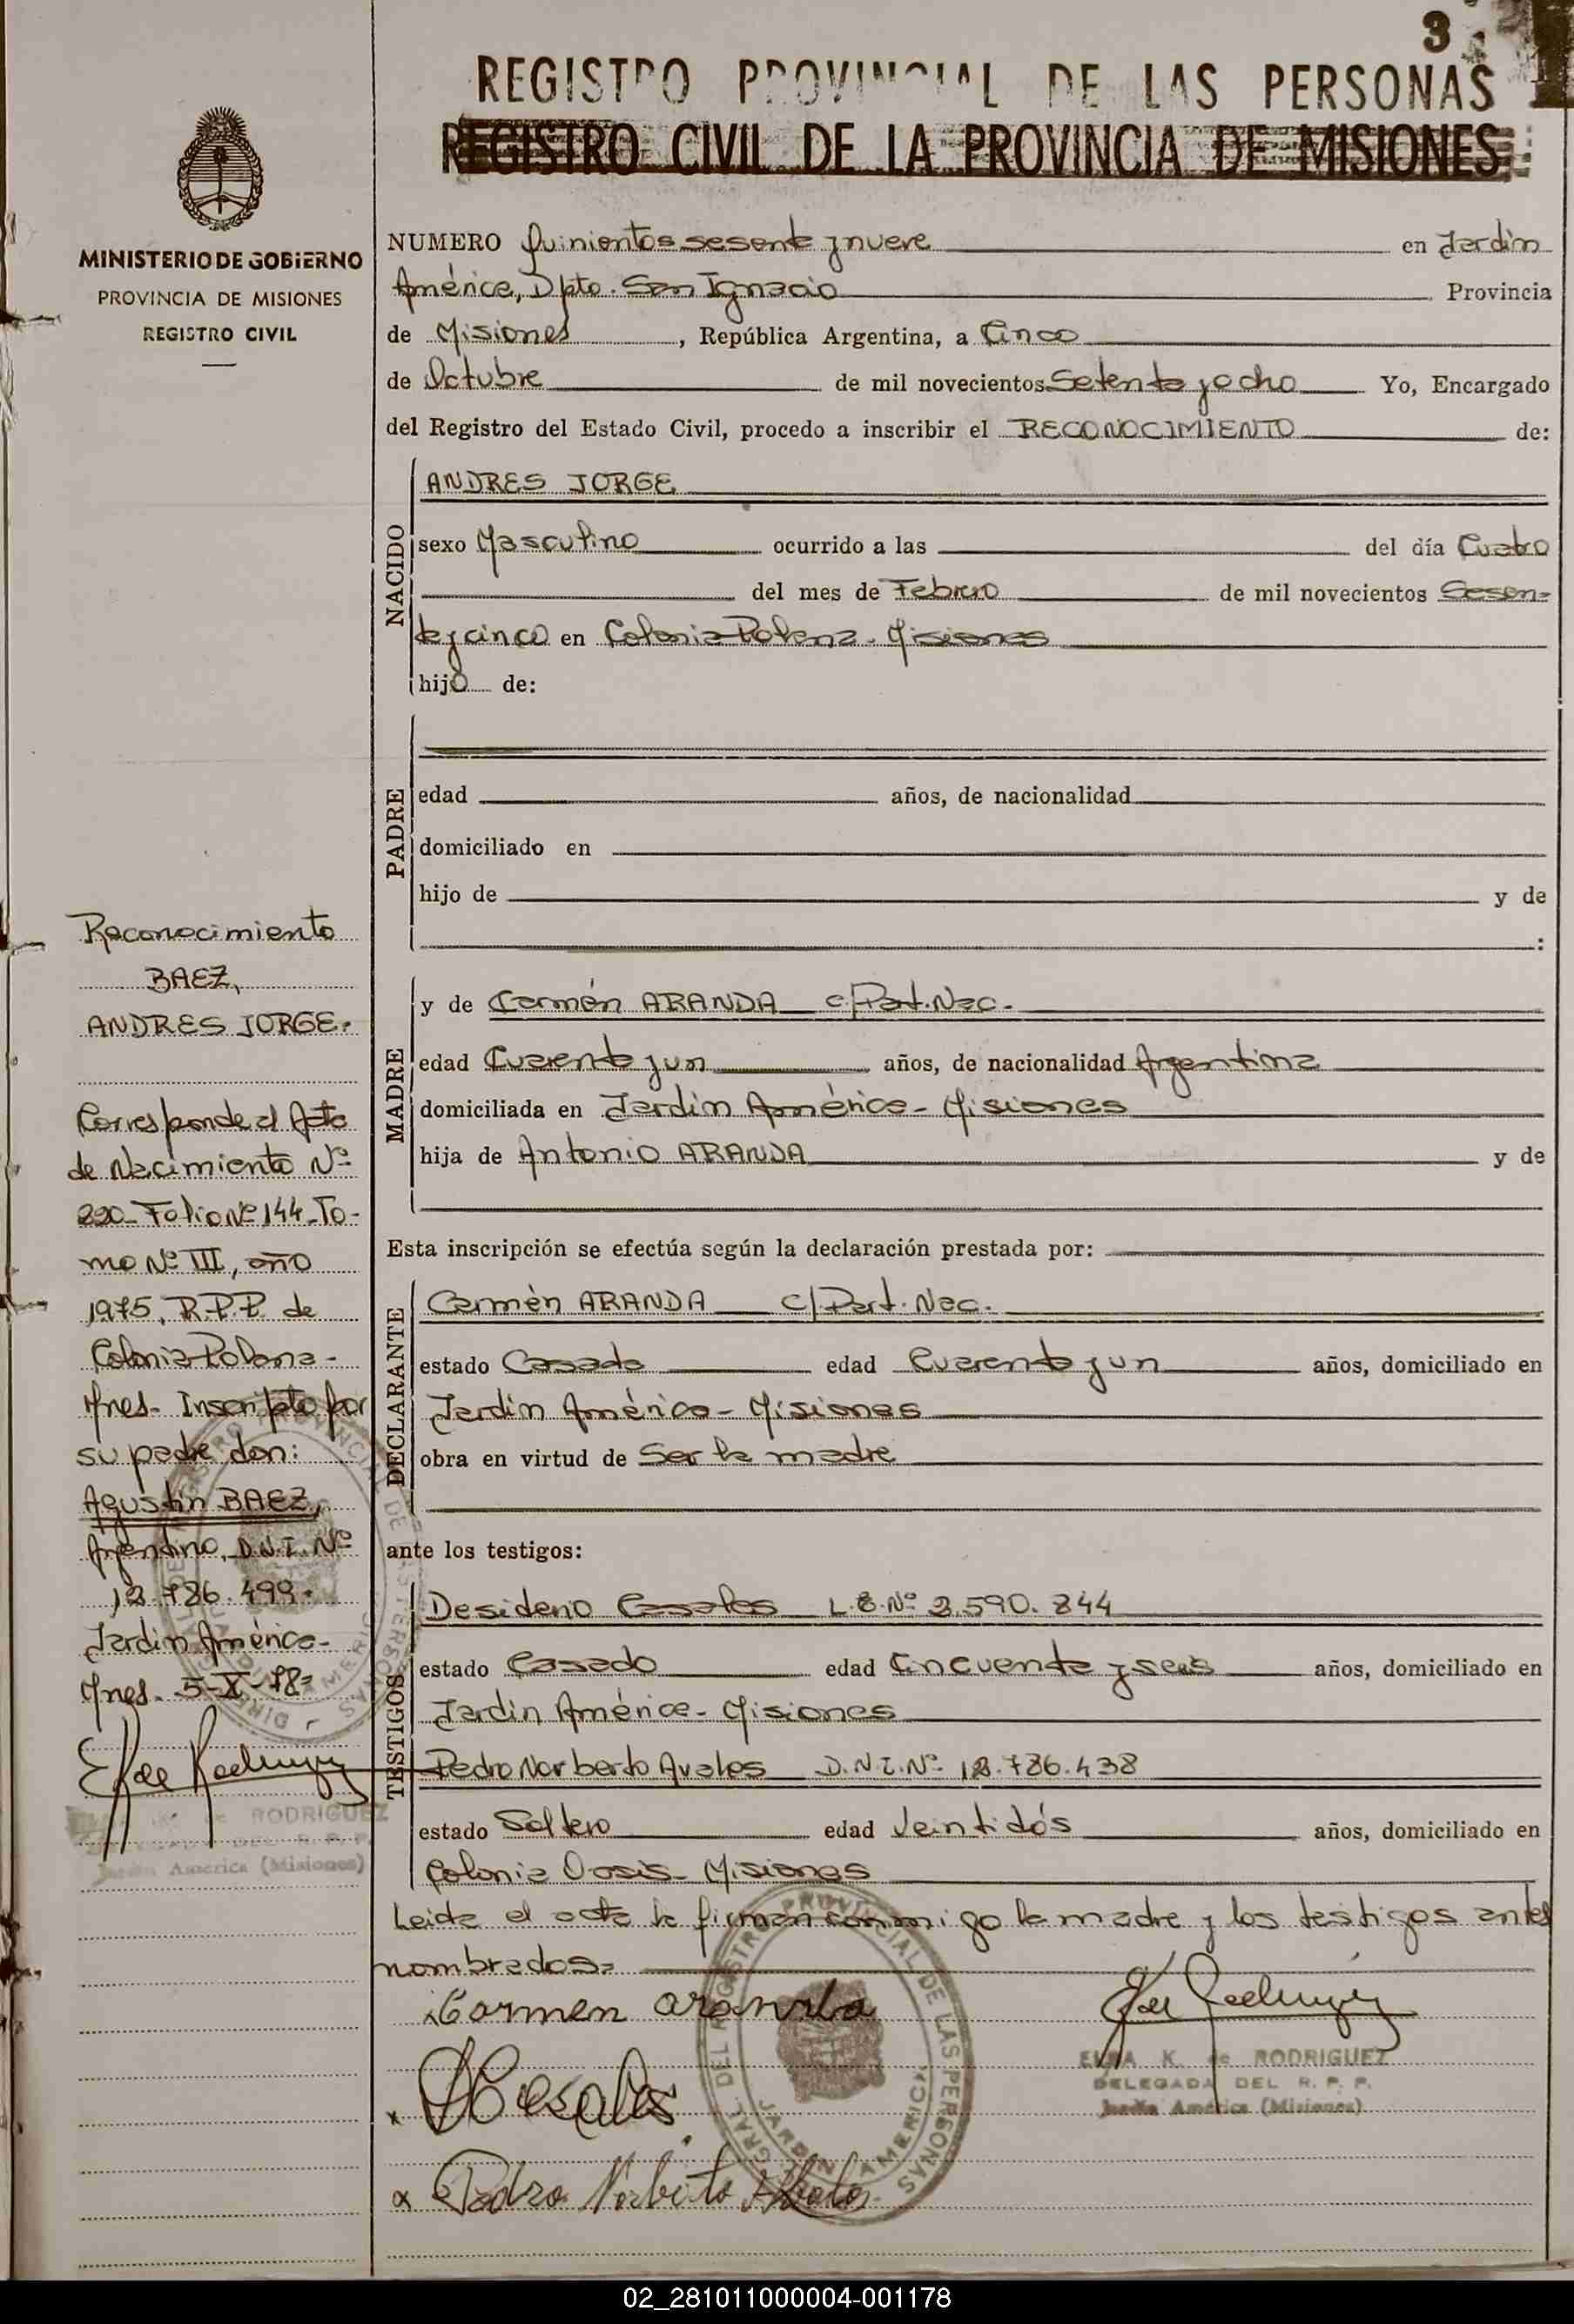 3
REGISTRO PROVINCIAL DE LAS PERSONAS
REGISTRO CIVIL DE LA PROVINCIA DE MISIONES
MINISTERIO DE GOBIERNO
PROVINCIA DE MISIONES
REGISTRO CIVIL
Reconocimiento
BAEZ,
ANDRES JORGE.
Corresponde al Acta
de Nacimiento Nº
290- Folio Nº 144-To-
mo Nº III, año
1975, R.P.P. de
Colonia Polana-
Mnes- Inscripto por
su padre don:
Agustín BAEZ,
Argentino, D.N.I. Nº
12.786.499-
Jardín América-
Mnes. 5-X-78=
de RODRIGUEZ
DEL R. P. P.
Jardín América (Misiones)
NUMERO Quinientos sesenta y nueve en Jardín
América, Dpto. San Ignacio Provincia
de Misiones, República Argentina, a Cinco
de Octubre de mil novecientos Setenta y ocho Yo, Encargado
del Registro del Estado Civil, procedo a inscribir el RECONOCIMIENTO de:
NACIDO
ANDRES JORGE
sexo Masculino ocurrido a las del día Cuatro
del mes de Febrero de mil novecientos Sesen-
ta y cinco en Colonia Polana- Misiones
hijo de:
PADRE
edad años, de nacionalidad
domiciliado en
hijo de y de
:
MADRE
y de Carmén ARANDA c/Part.Nac.
edad Cuarenta y un años, de nacionalidad Argentina
domiciliada en Jardín América- Misiones
hija de Antonio ARANDA y de
Esta inscripción se efectúa según la declaración prestada por:
DECLARANTE
Carmén ARANDA c/Part. Nac.
estado Casada edad Cuarenta y un años, domiciliado en
Jardín América- Misiones
obra en virtud de Ser la madre
ante los testigos:
TESTIGOS
Desiderio Casales L.E.Nº 3.590.844
estado Casado edad Cincuenta y seis años, domiciliado en
Jardín América- Misiones
Pedro Norberto Avalos D.N.I.Nº 12.786.438
estado Soltero edad Veintidós años, domiciliado en
Colonia Oasis- Misiones
Leida el acta la firman conmigo la madre y los testigos antes
nombrados=
Carmen Aranda
ELBA K. de RODRIGUEZ
DELEGADA DEL R. P. P.
Jardín América (Misiones)
x DCasales
x Pedro Norberto Abalos
DEL REGISTRO PROVINCIAL DE LAS PERSONAS
JARDIN AMERICA
02_281011000004-001178